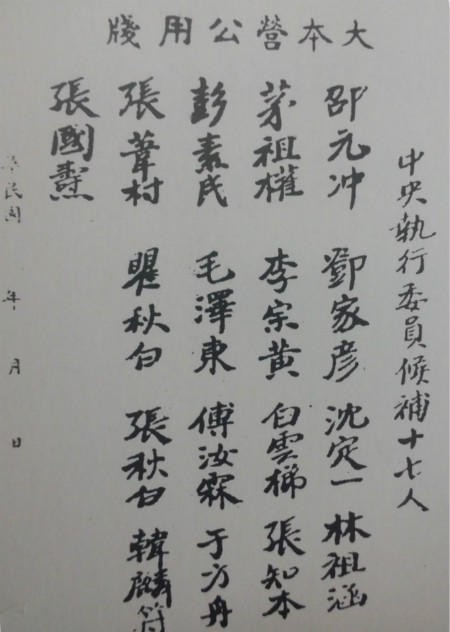 大本營公用牋
中央執行委員候補十七人
邵元冲 鄧家彦 沈定一 林祖涵
茅祖權 李宗黄 白雲梯 張知本
彭素民 毛澤東 傅汝霖 于方舟
張葦村 瞿秋白 張秋白 韓麟符
張國燾
華民國 年 月 日